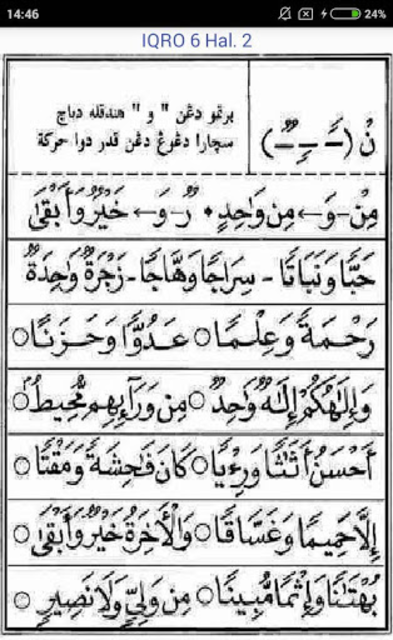 14:46
24%
IQRO 6 Hal. 2
نْ (ـًـ ـٍـ ـٌـ)
برتمو دڠن " و " هندقله دباچ
سچارا دڠوڠ دڠن قدر دوا حركة
مِنْ-وَ ← مِن وَاحِدٍ • رٌ-وَ ← خَيْرٌ وَأَبْقَىٰ
حَبًّا وَنَبَاتًا - سِرَاجًا وَهَّاجًا - زَجْرَةٌ وَاحِدَةٌ
رَحْمَةً وَعِلْمًا ○ عَدُوًّا وَحَزَنًا ○
وَإِلَٰهُكُمْ إِلَٰهٌ وَاحِدٌ ○ مِن وَرَآئِهِم مُّحِيطٌ ○
أَحْسَنُ أَثَٰثًا وَرِءْيًا ○ كَانَ فَاحِشَةً وَمَقْتًا ○
إِلَّا حَمِيمًا وَغَسَّاقًا ○ وَالْأَخِرَةُ خَيْرٌ وَأَبْقَىٰ ○
بُهْتَٰنًا وَإِثْمًا مُّبِينًا ○ مِن وَلِيٍّ وَلَا نَصِيرٍ ○